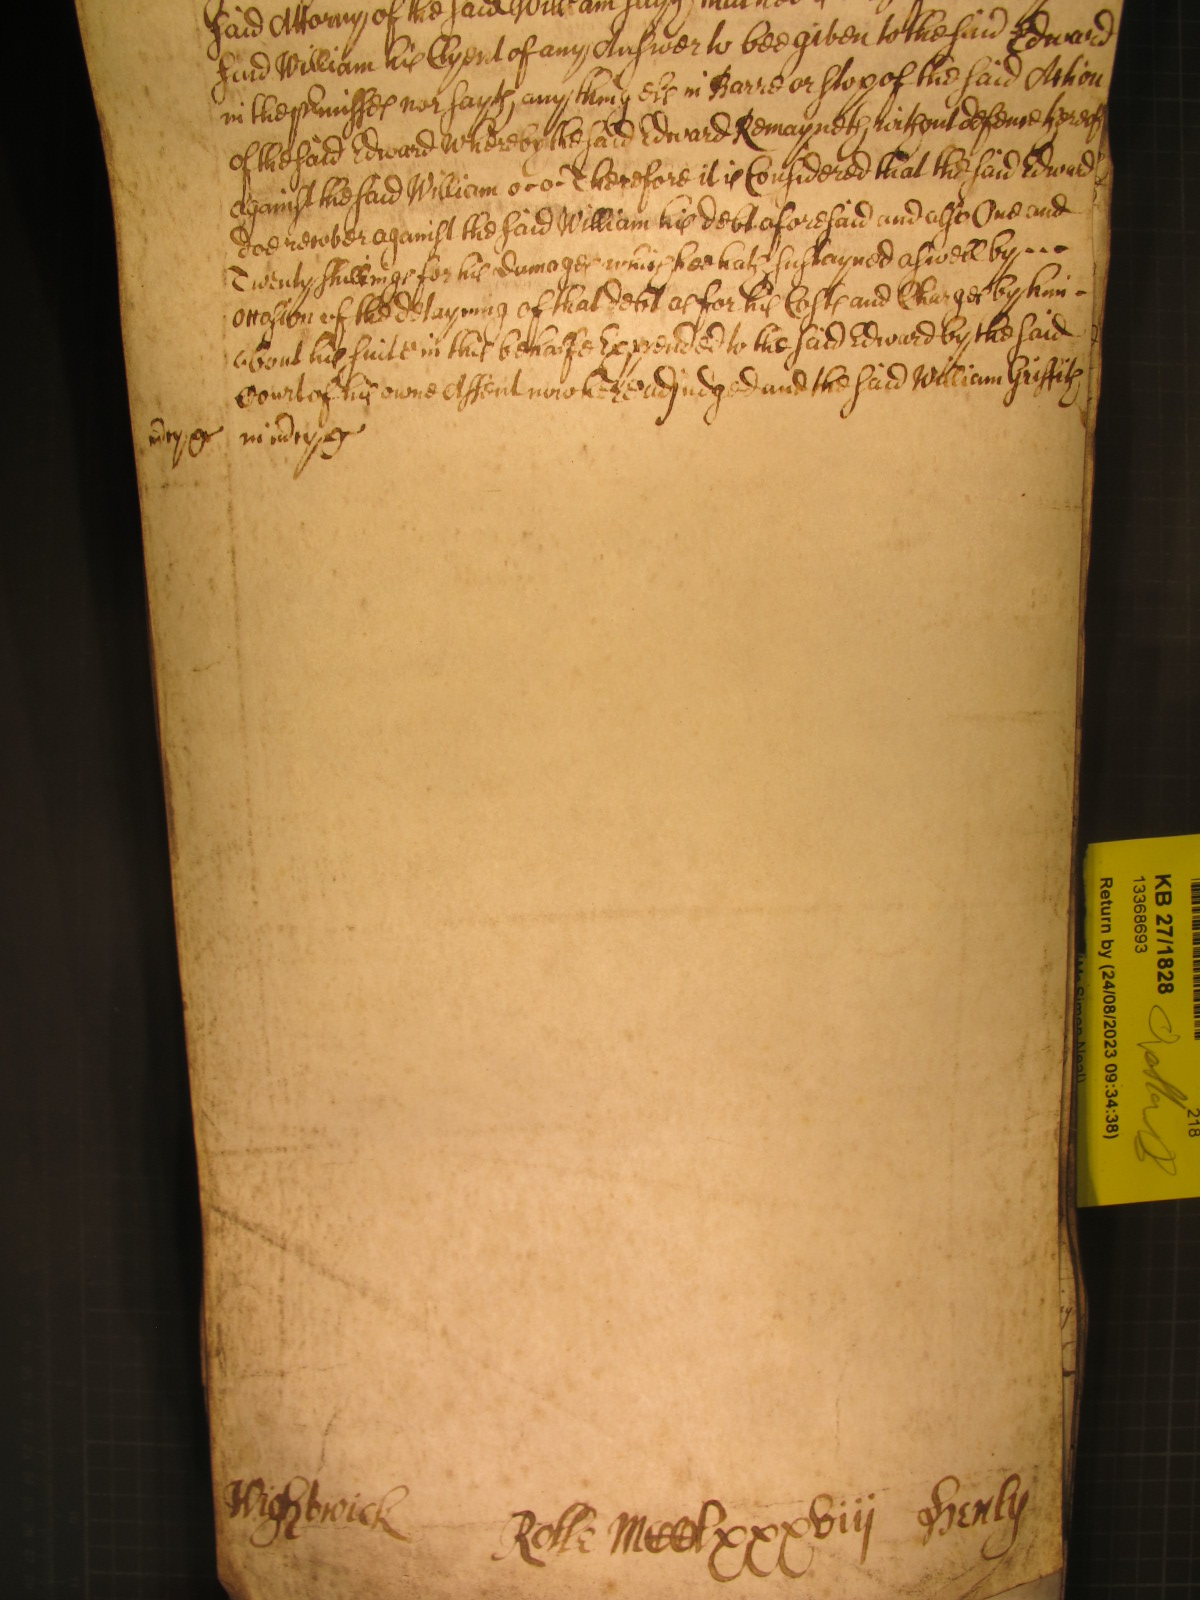 said Attorny of the said William sayth
said William his Clyent of any Answer to bee given to the said Edward
in the p̱misses nor sayth any thing els in Barre or stop of the said Action
of the said Edward Whereby the said Edward Remayneth without defence hereof
against the said William o-o- Therefore it is Considered that the said Edward
doe recover against the said William his debt aforesaid and also One and
Twenty shillings for his damages which hee hath sustayned aswell by - - -
occasion of the delayning of that debt as for his Costs and Charges by him -
about his suite in this behalfe Expended to the said Edward by the said
Court of his owne Assent now here adjudged and the said William Griffith
in mercy &c
mercy &c
Wightwick
Rolle Mccclxxxxviij
Henly
KB 27/1828
13368693
Return by (24/08/2023 09:34:38)
218
(Mr Simon Neal)